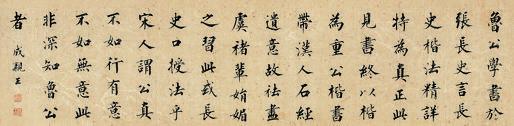 魯公學書於
張長史言長
史楷法精詳
特為真正此
見書終以楷
為重公楷書
帶漢人石經
遺意故祛盡
虞褚輩娟媚
之習此或長
史口授法乎
宋人謂公真
不如行有意
不如無意此
非深知魯公
者 成親王